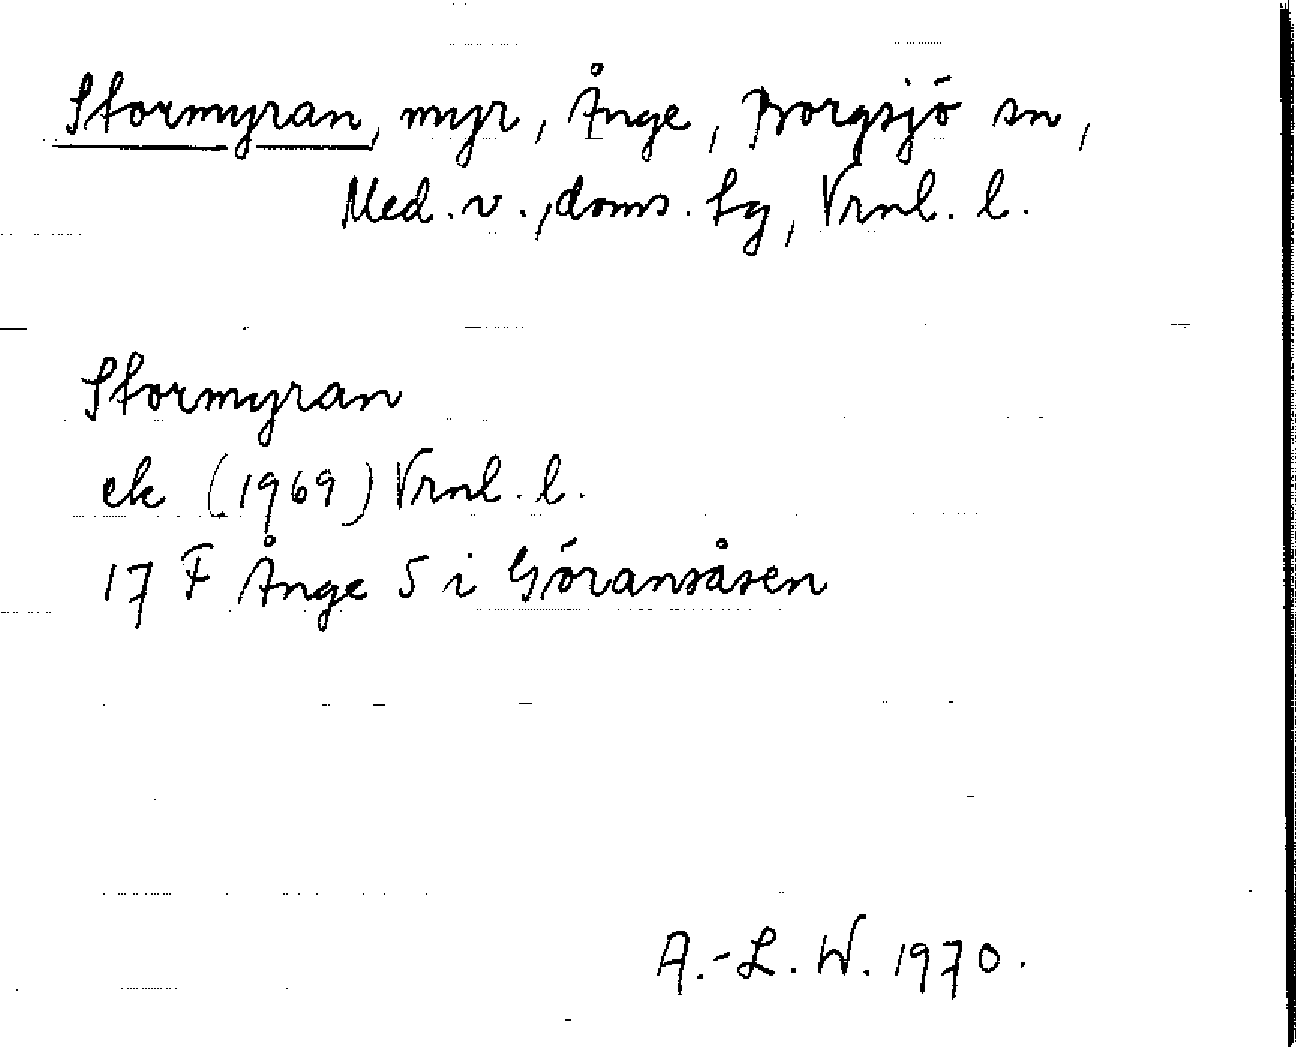 Stormyran, myr, Ånge, Borgsjö sn,
Med. v., doms. tg, Vrnl. l.
Stormyran
ek (1969) Vrnl. l.
17 F Ånge 5 i Göransåsen
A.-L. W. 1970.